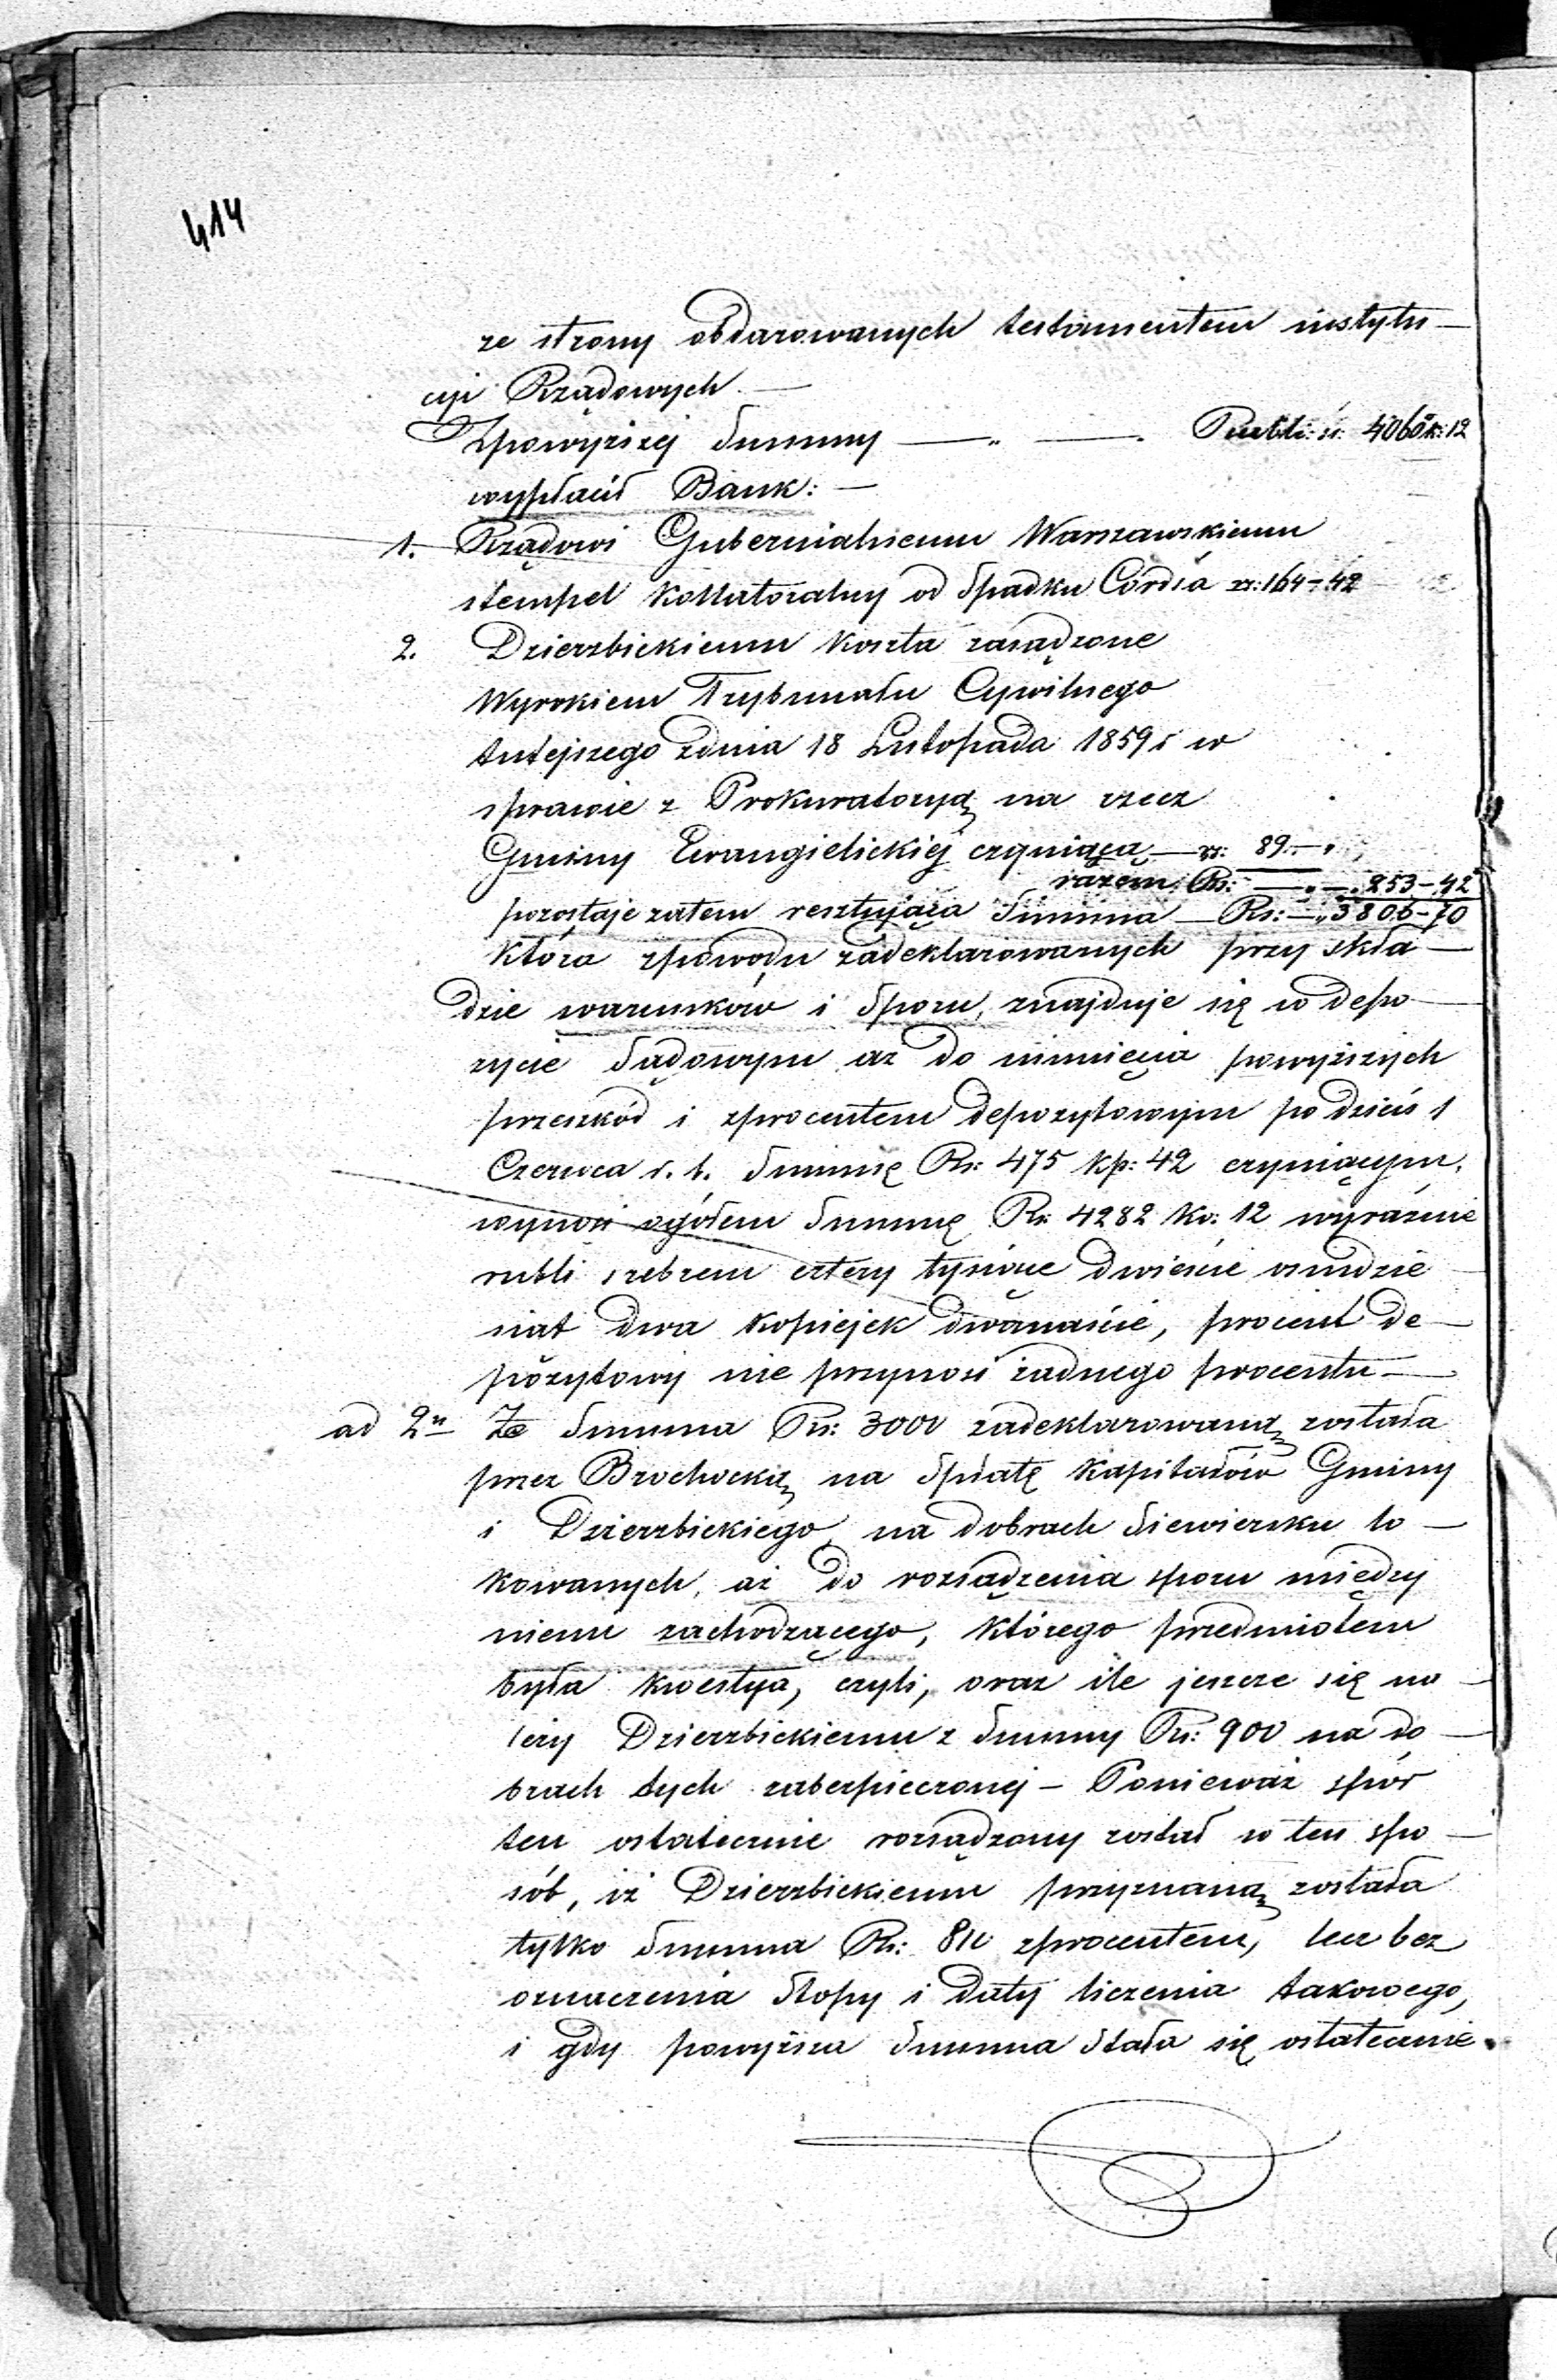 414
ze strony obdarowanych testamentem instytu—
cyi Rządowych —
Zpowyższej Summy — „ — Rubli: sr. 4060 k: 12
wypłacił Bank: —
1. Rządowi Gubernialnemu Warszawskiemu
stempel Kollatoralny od Spadku Córdśa rs: 164–42
2. Dzierzbickiemu Koszta zasądzone
Wyrokiem Trybunału Cywilnego
tutejszego zdnia 18 Listopada 1859 r w
sprawie z Prokuratoryą na rzecz
Gminy Ewangielickiej czyniące — rs: 89 — „
razem: Rs: — „ — . 253–42
pozostaje zatem resztująca Summa — Rs: — „ 3806–70
Która zpowodu zadeklarowanych przy skła—
dzie warunków i Sporu, znajduje się w depo—
zycie Sądowym aż do uiunięcia powyższych
przeszkód i zprocentem depozytowym po dzień 1
Czerwca r. b. Summę Rs: 475 kp: 42 czyniącym,
wynosi ogółem Summę Rs: 4282 ko: 12 wyraźnie
rubli srebrem cztery tysiące dwieście osimdzie—
siat dwa Kopiejek dwanaście, procent de—
pozytowy nie przynosi żadnego procentu —
ad 2n Że Summa Rs: 3000 zadeklarowaną została
przez Brochocką na Spłatę Kapitałów Gminy
i Dzierzbickiego na dobrach Siewiersku lo—
kowanych, aż do rozsądzenia sporu między
niemi zachodzącego, którego przedmiotem
była Kwestya, czyli, oraz ile jeszcze się na—
leży Dzierzbickiemu z Summy Rs: 900 na do—
brach tych zabezpieczonej — Ponieważ spór
ten ostatecznie rozsądzony został w ten spo—
sób, iż Dzierzbickiemu przyznaną została
tylko Summa Rs: 810 zprocentem, lecz bez
oznaczenia Stopy i Daty liczenia takowego,
i gdy powyższa Summa Stała się ostatecznie